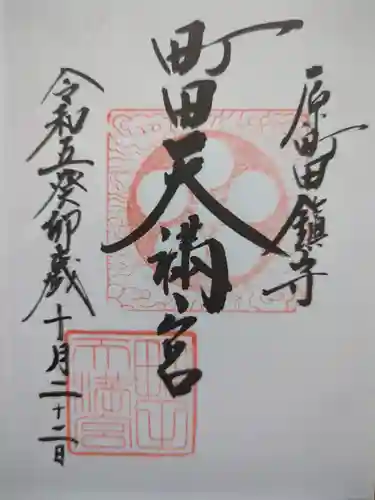 原町田鎮守
町田天満宮
令和五癸卯歳十月二十二日